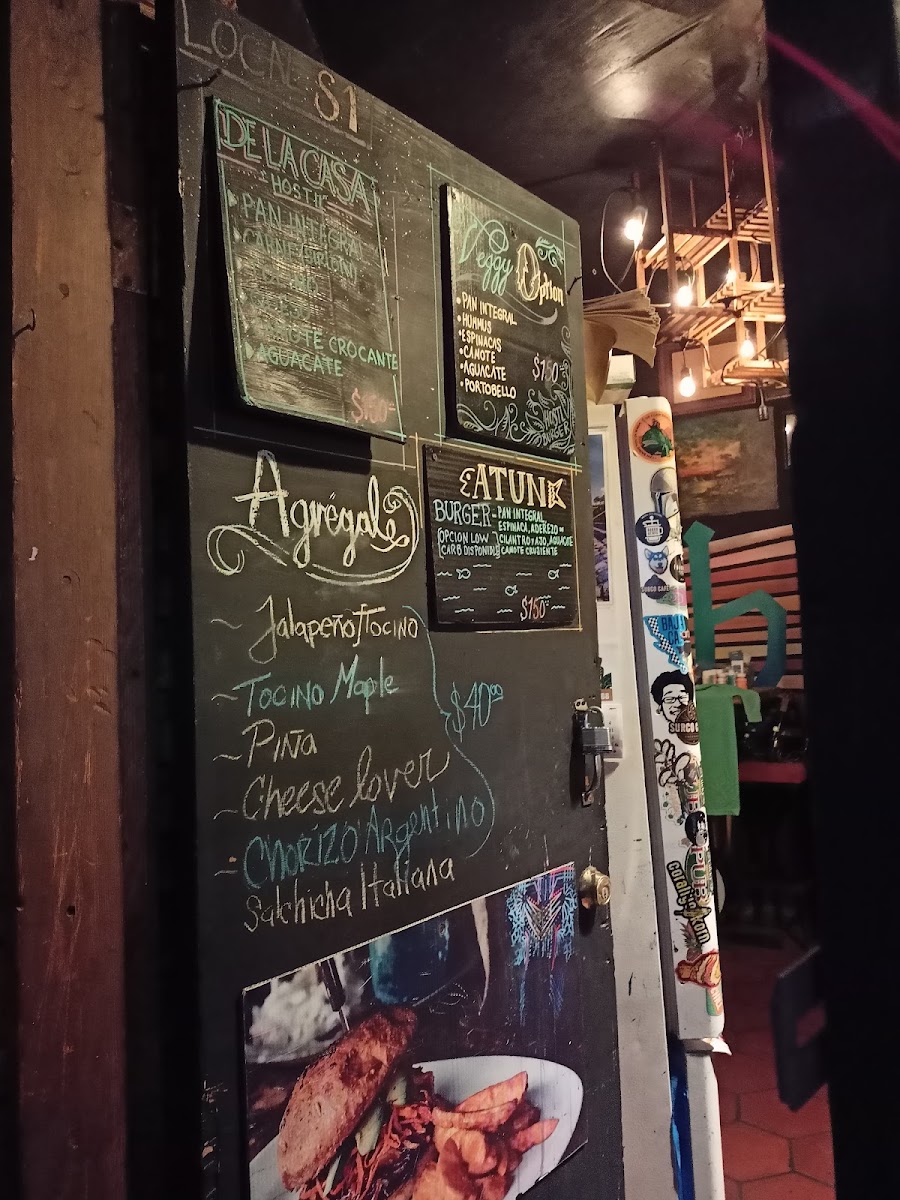 LOCAL S1
DE LA CASA
PAN INTEGRAL
CAMOTE CROCANTE
AGUACATE
$150=
Veggy Option
• PAN INTEGRAL
• HUMMUS
• ESPINACAS
• CAMOTE
• AGUACATE
• PORTOBELLO
$150=
BURGER
ATUN
BURGER - PAN INTEGRAL
ESPINACA, ADEREZO DE
OPCION LOW CILANTRO Y AJO, AGUACATE
CARB DISPONIBLE CAMOTE CRUJIENTE
$150=
Agrégale
~ Jalapeño/Tocino
~ TOCINO Maple
$40⁰⁰
~ PIÑA
~ Cheese lover
~ CHORIZO Argentino
Salchicha Italiana
SURCO CAFE
BAJA
CA
SURCO
PUB